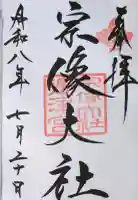 奉拝
宗像大社
令和八年七月二十日